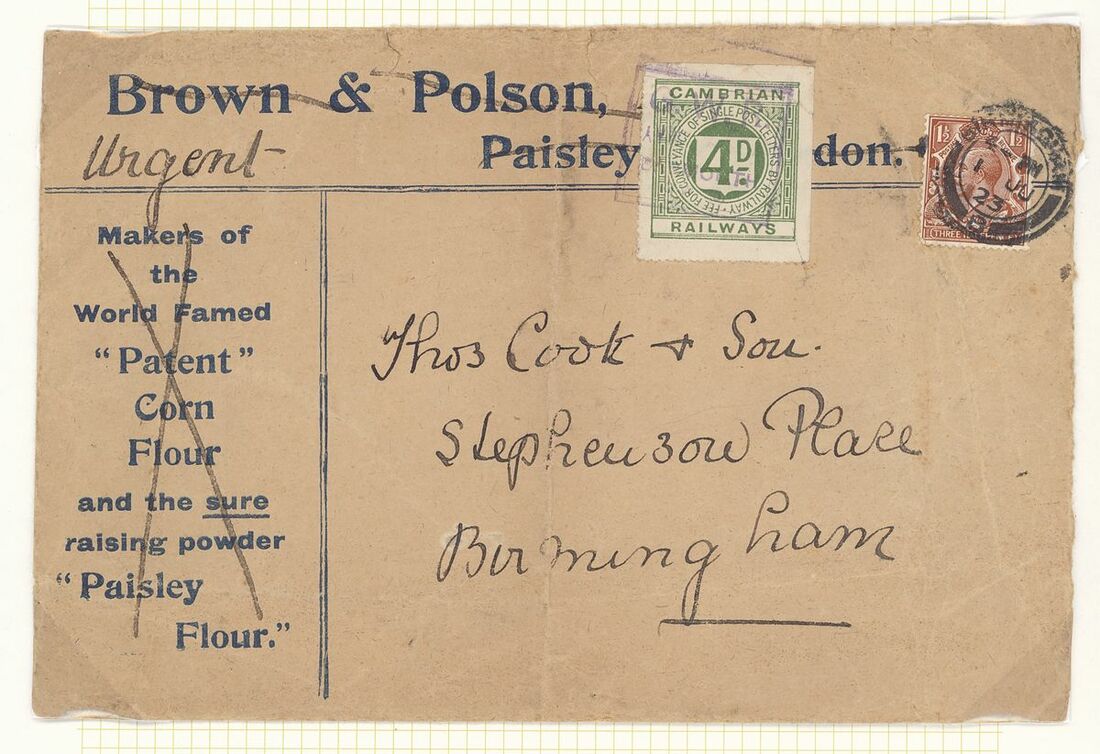 Brown & Polson,
Urgent
Paisley
don.
CAMBRIAN
FEE FOR CONVEYANCE OF SINGLE POST LETTERS BY RAILWAY
4D
RAILWAYS
1½ 1½
THREE
JU
23
Makers of
the
World Famed
"Patent"
Corn
Flour
and the sure
raising powder
"Paisley
Flour."
Thos Cook & Son.
Stephenson Place
Birmingham